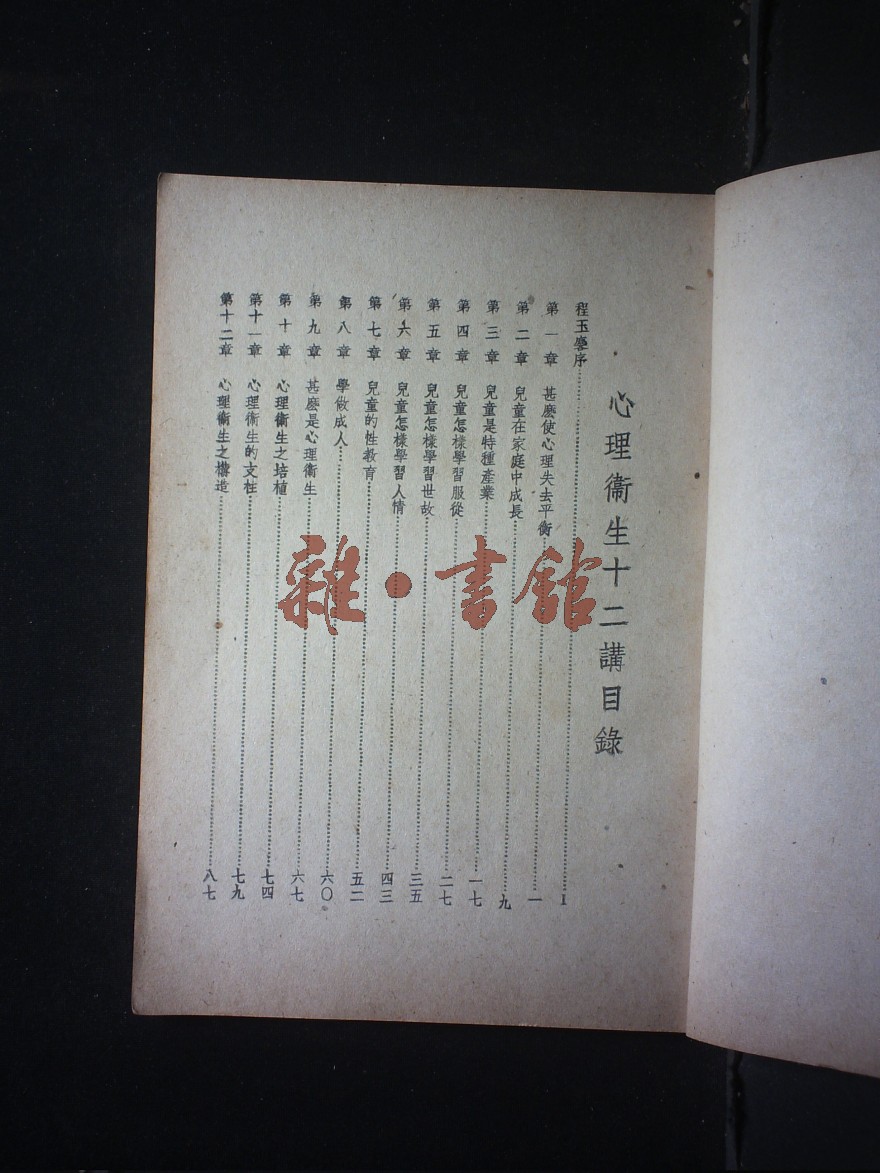 心理衞生十二講目錄
程玉麐序 I
第一章 甚麽使心理失去平衡 一
第二章 兒童在家庭中成長 九
第三章 兒童是特種產業 一七
第四章 兒童怎樣學習服從 二七
第五章 兒童怎樣學習世故 三五
第六章 兒童怎樣學習人情 四三
第七章 兒童的性敎育 五二
第八章 學做成人 六〇
第九章 甚麽是心理衞生 六七
第十章 心理衞生之培植 七四
第十一章 心理衞生的支柱 七九
第十二章 心理衞生之構造 八七
雜·書館